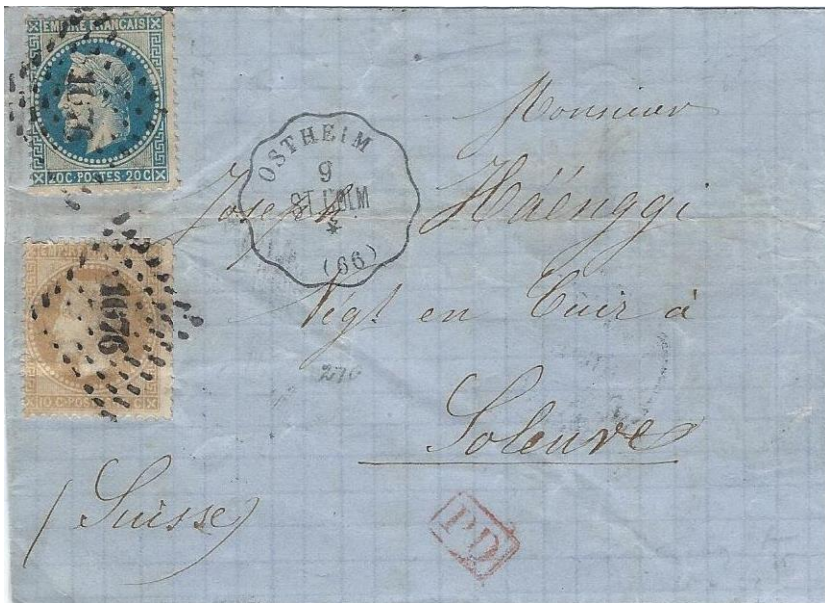 EMPIRE FRANÇAIS
20C·POSTES 20C
OSTHEIM
9
ST.COLM
*
(66)
1676
10 C·POSTES
Monsieur
Joseph Häënggi
Négt en Cuir à
Soleure
(Suisse)
PD